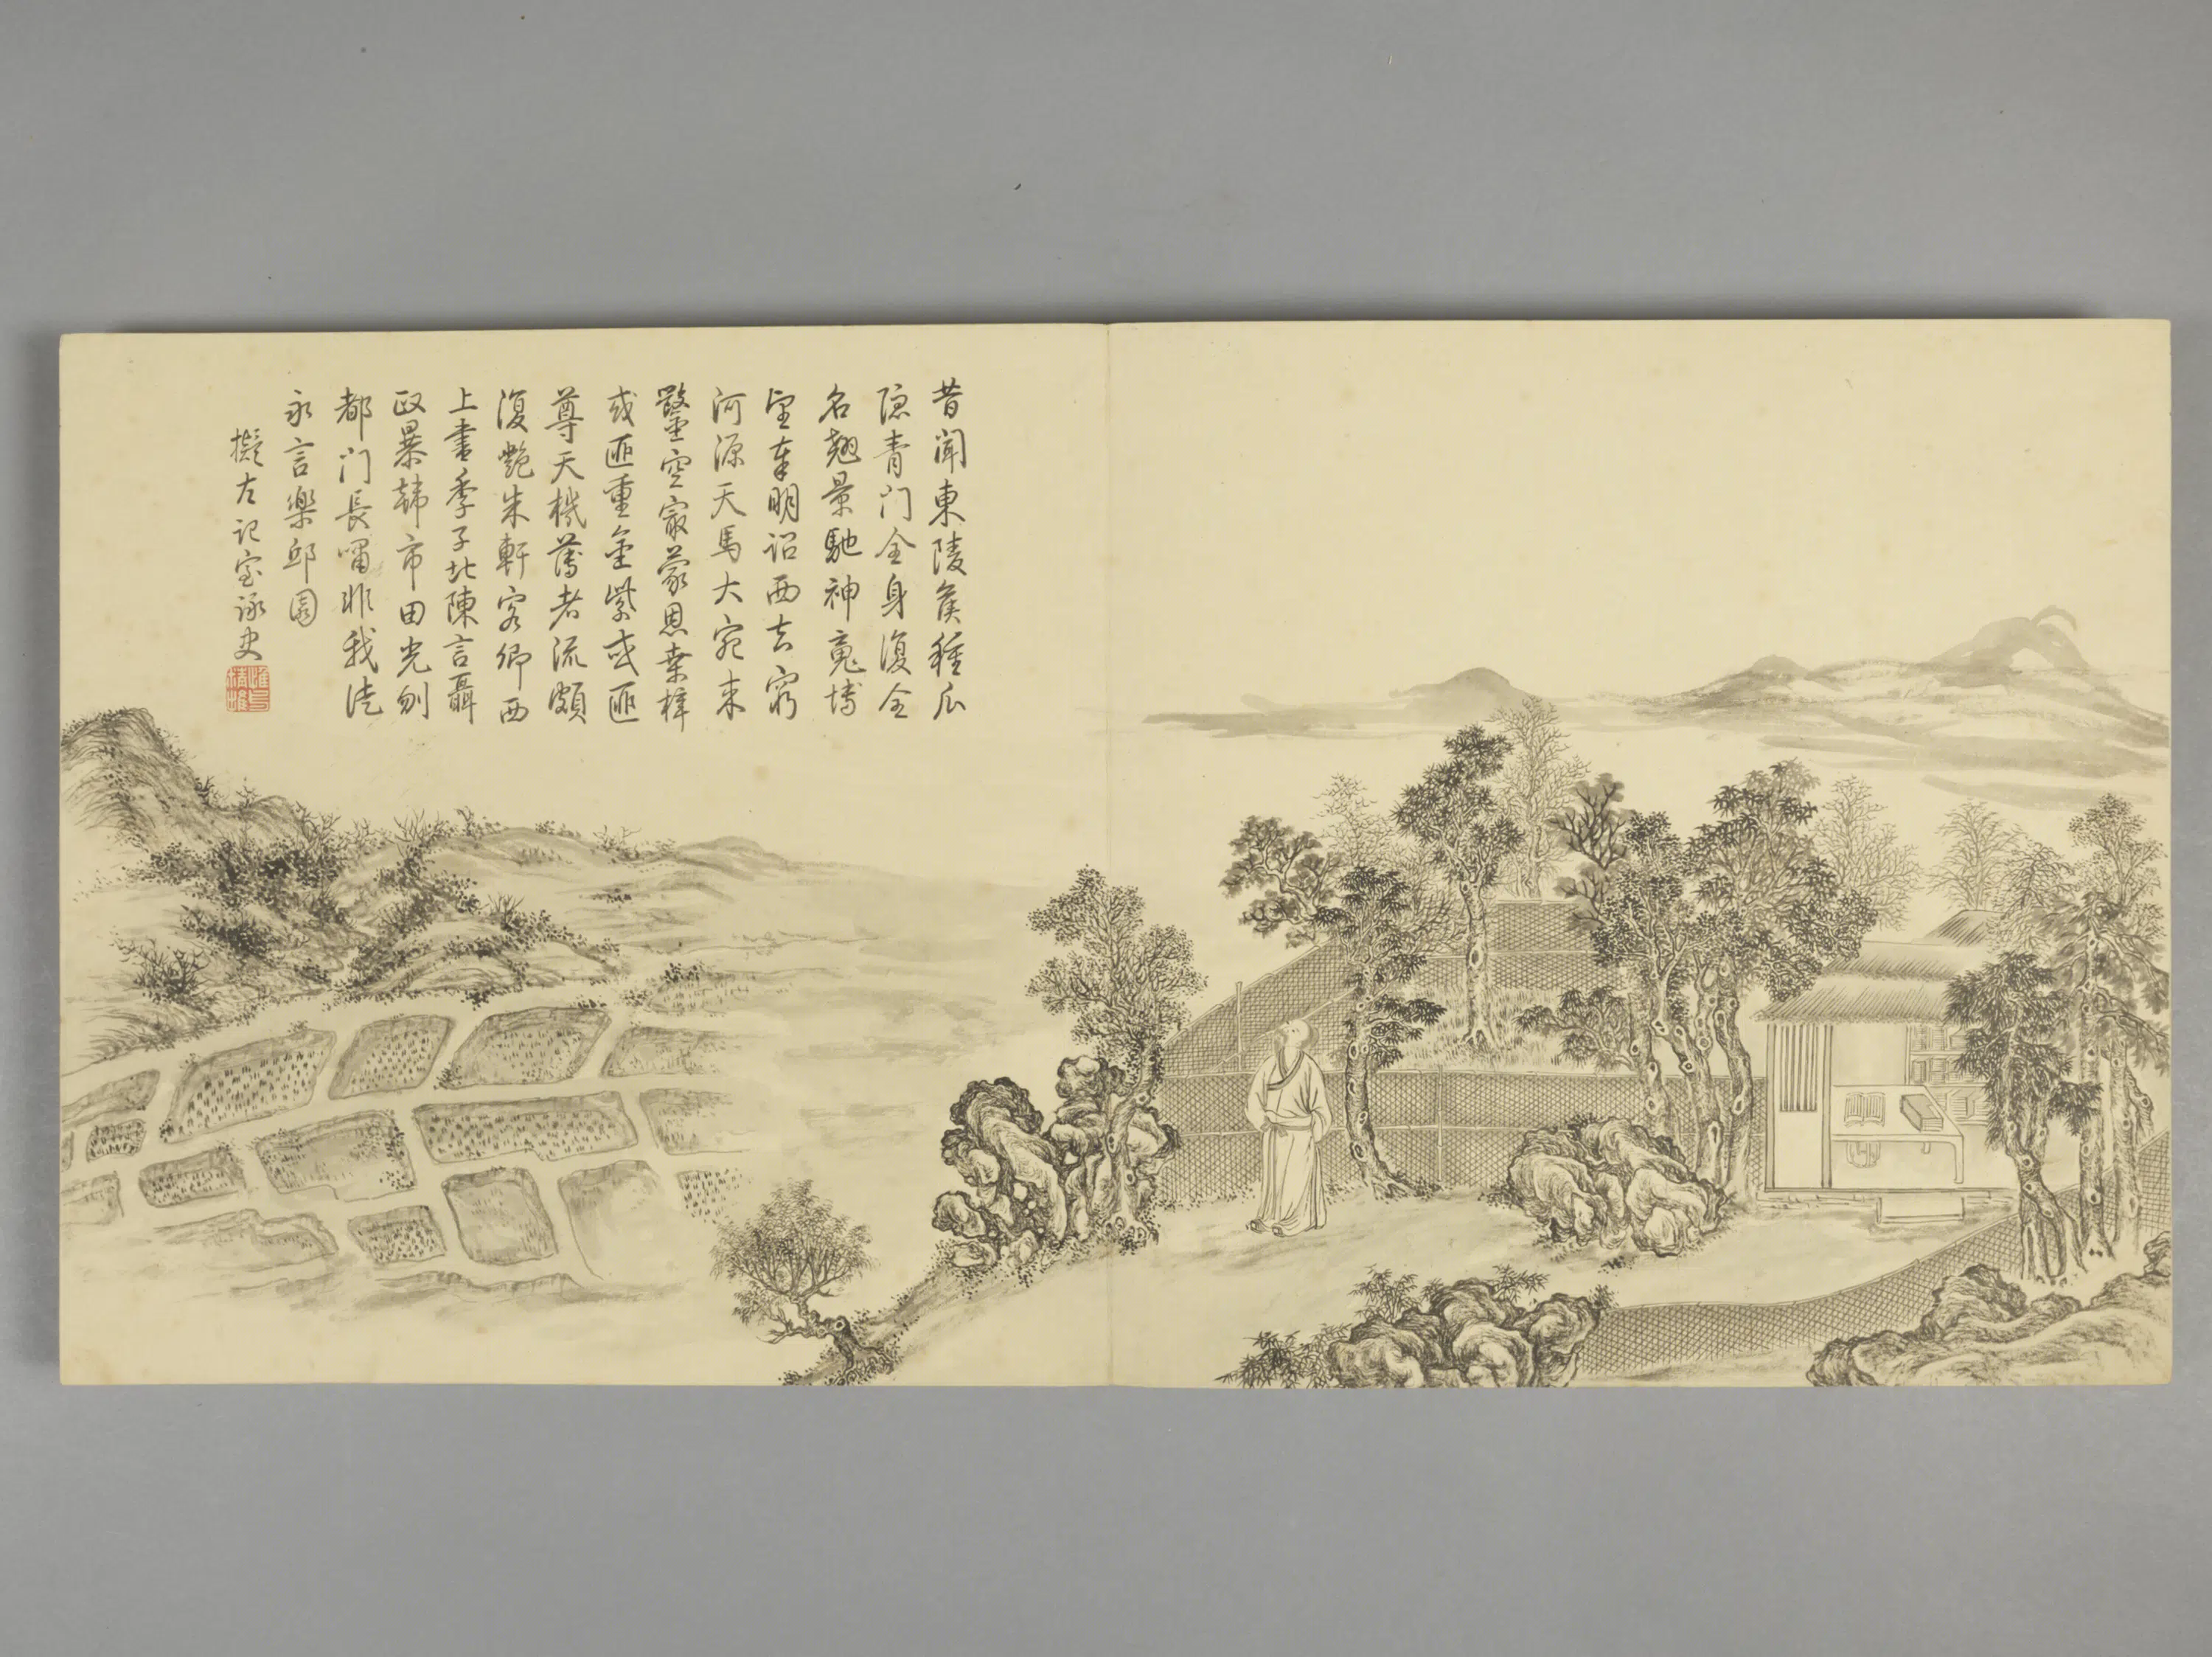 昔聞東陵侯種瓜
隱青门全身復全
名翹景馳神嵬博
望奉明詔西去窮
河源天馬大宛來
鑿空最蒙恩桒梓
或匪重金紫或匪
尊天機薄者流頗
復艷朱軒客卿西
上書季子北陳言聶
政暴韓市田光刎
都门長嘯非我徒
永言樂邱園
擬左記室詠史